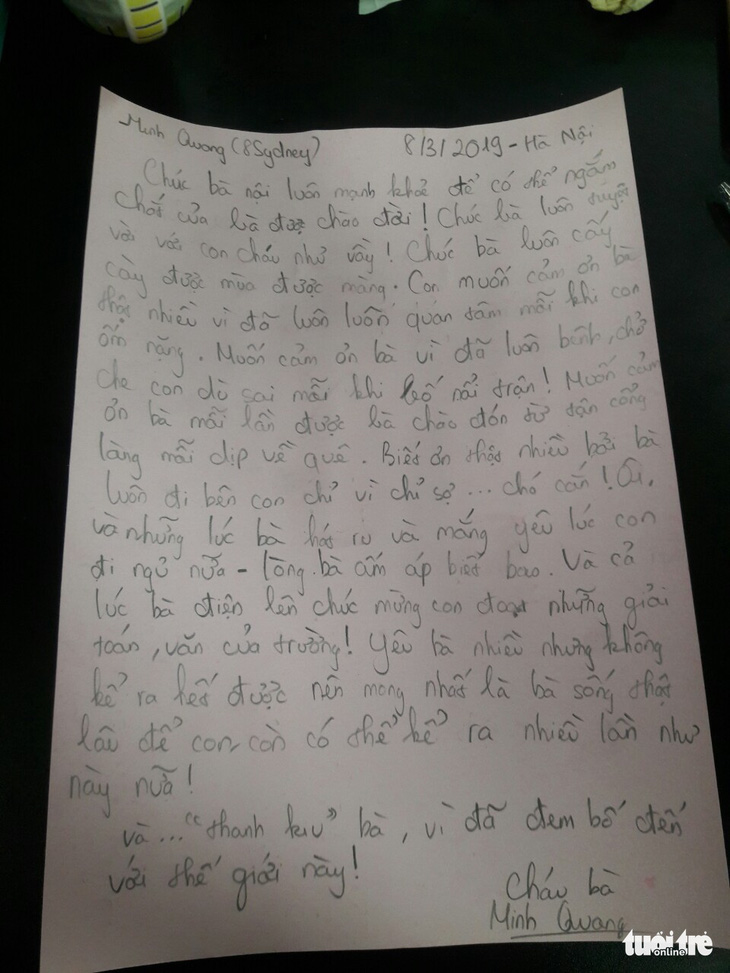 Minh Quang (8Sydney) 8/3/2019 - Hà Nội
Chúc bà nội luôn mạnh khoẻ để có thể ngắm
chắt của bà được chào đời! Chúc bà luôn tuyệt
vời với con cháu như vầy! Chúc bà luôn cấy
cày được mùa được màng. Con muốn cảm ơn bà
thật nhiều vì đã luôn luôn quan tâm mỗi khi con
ốm nặng. Muốn cảm ơn bà vì đã luôn bênh, chở
che con dù sai mỗi khi bố nổi trận! Muốn cảm
ơn bà mỗi lần được bà chào đón từ tận cổng
làng mỗi dịp về quê. Biết ơn thật nhiều bởi bà
luôn đi bên con chỉ vì chỉ sợ... chó cắn! Ôi,
và những lúc bà hát ru và mắng yêu lúc con
đi ngủ nữa - lòng bà ấm áp biết bao. Và cả
lúc bà điện lên chúc mừng con đoạt những giải
toán, văn của trường! Yêu bà nhiều nhưng không
kể ra hết được nên mong nhất là bà sống thật
lâu để con còn có thể kể ra nhiều lần như
này nữa!
và... "thanh kiu" bà, vì đã đem bố đến
với thế giới này!
Cháu bà
Minh Quang
tuổi trẻ
online